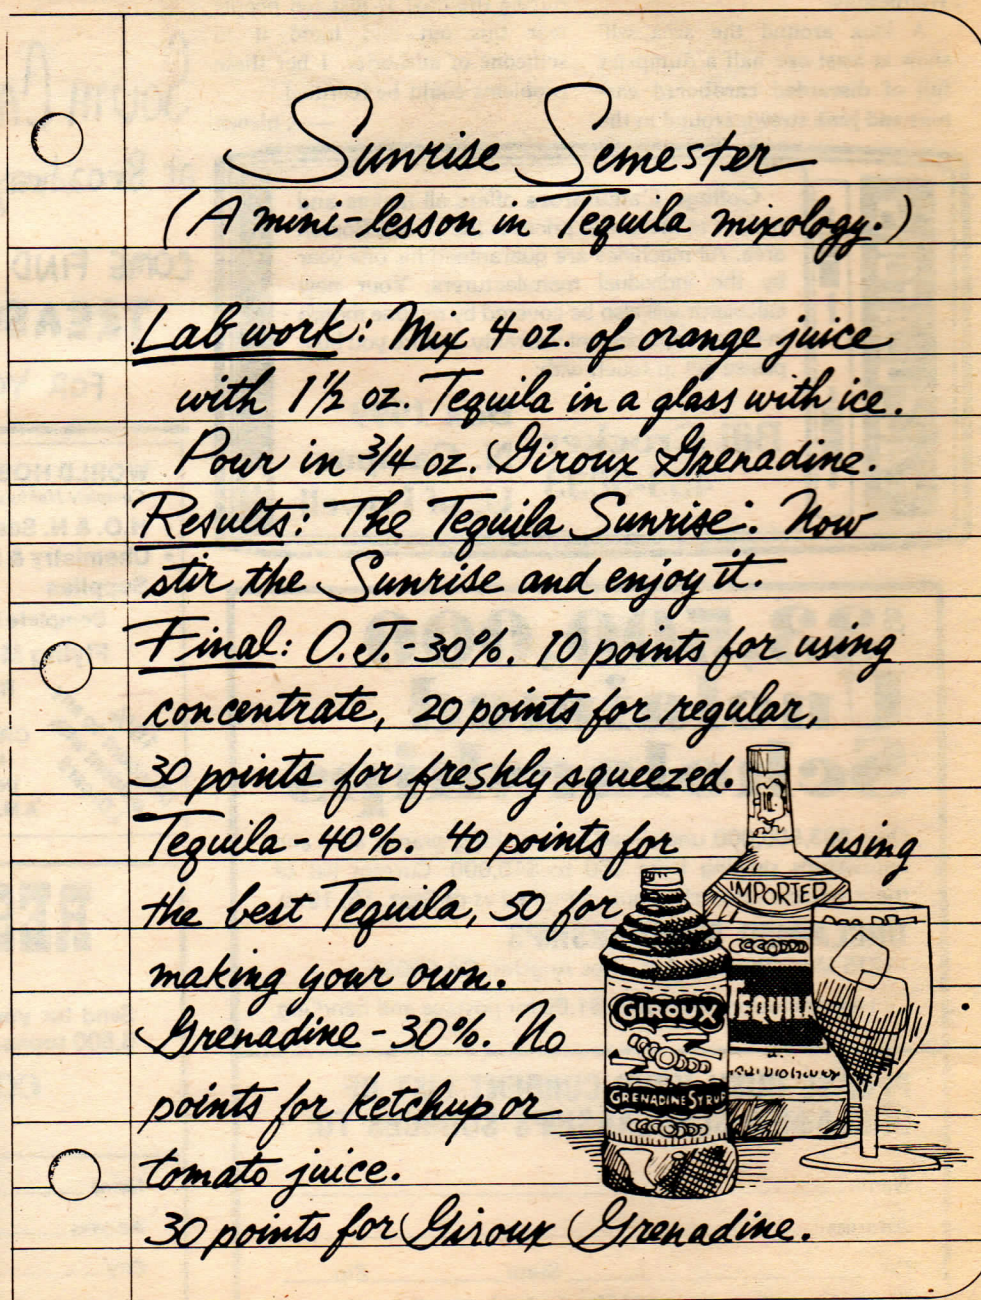 Sunrise Semester
(A mini-lesson in Tequila mixology.)
Lab work: Mix 4 oz. of orange juice
with 1 1/2 oz. Tequila in a glass with ice.
Pour in 3/4 oz. Giroux Grenadine.
Results: The Tequila Sunrise. Now
stir the Sunrise and enjoy it.
Final: O.J.-30%. 10 points for using
concentrate, 20 points for regular,
30 points for freshly squeezed.
Tequila-40%. 40 points for using
the best Tequila, 50 for
making your own.
Grenadine-30%. No
points for ketchup or
tomato juice.
30 points for Giroux Grenadine.
IMPORTED
TEQUILA
GIROUX
GRENADINE SYRUP